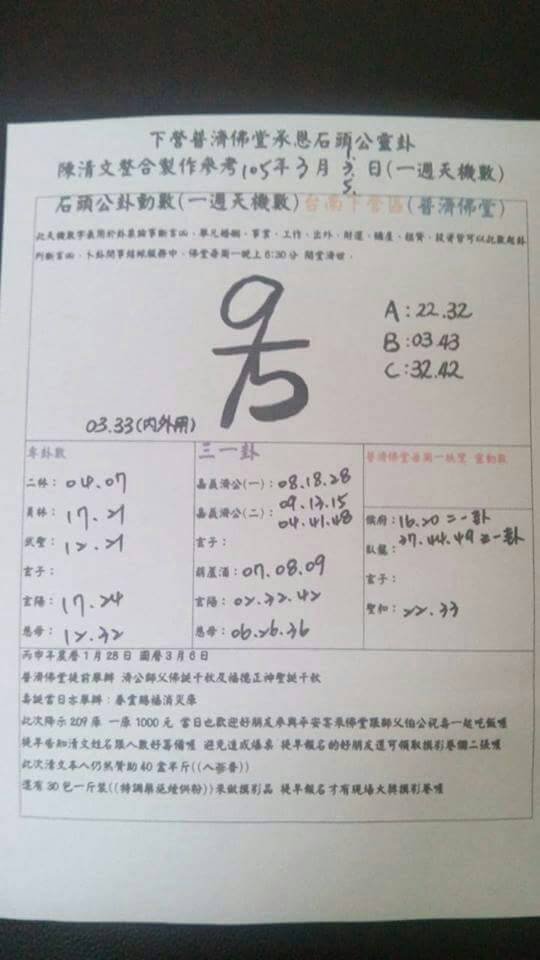 下營普濟佛堂承恩石頭公靈卦
陳清文整合製作參考105年3月1.3.5.日(一週天機數)
石頭公卦動數(一週天機數)台南下營區(普濟佛堂)
此天機數字義開於卦義論事斷吉凶、舉凡婚姻、事業、工作、出外、財運、購屋、租賃、投資皆可以此數起卦
判斷吉凶、卜卦問事結緣服務中、佛堂每周一晚上6:30分 開堂濟世.
A:22.32
B:03.43
C:32.42
03.33(內外用)
專卦數
二林:04.07
員林:17.21
武聖:12.21
玄子:
玄陽:17.24
慈母:12.32
三一卦
嘉義濟公(一):08.18.28
嘉義濟公(二):09.13.15
04.41.48
玄子:
葫蘆酒:07.08.09
玄陽:02.32.42
慈母:06.26.36
普濟佛堂每周一扶鸞 靈動數
侯府:16.20=一卦
臥龍:37.44.49=一卦
玄子:
聖和:22.33
丙申年農曆1月28日 國曆3月6日
普濟佛堂提前舉辦 濟公師父佛誕千秋及福德正神聖誕千秋
喜誕當日亦舉辦:春靈賜福消災庫
此次降示209庫 一庫1000元 當日也歡迎好朋友來與辛安客來佛堂跟師父伯公祝壽一起吃飯喔
提早告知清文姓名跟人數好籌備喔 避免造成爆桌 提早報名的好朋友還可領取摸彩卷個二張喔
此次清文本人仍然贊助40盒半斤((人蔘香))
還有30包一斤裝((特調藥施煙供粉))來做摸彩品 提早報名才有現場大牌摸彩卷喔